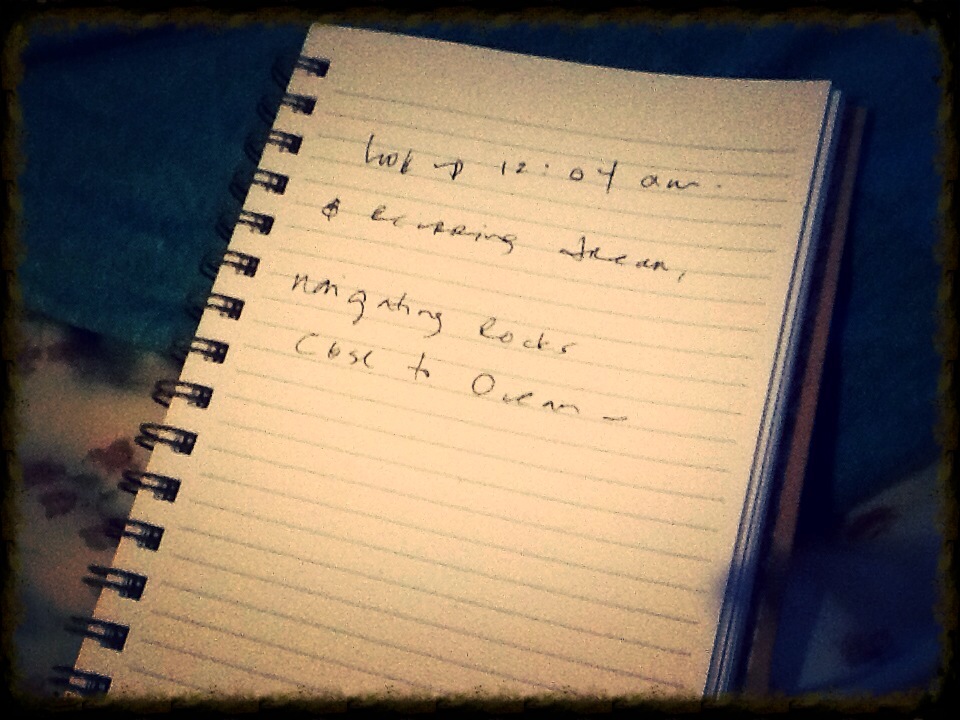 Woke up 12:04 am.
& recurring dream,
navigating Rocks
Close to Ocean –